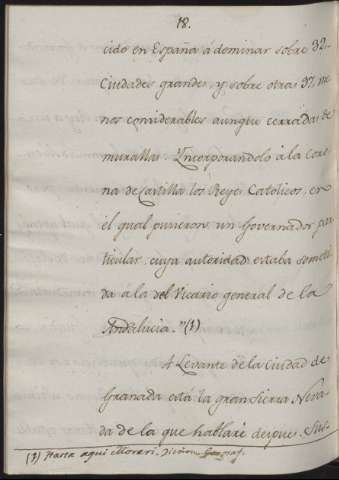 18.
cido en España á dominar sobre 32.
Ciudades grandes, y sobre otras 97 me
nos considerables aunque cerradas de
murallas. Yncorporandolo á la Coro
na de Castilla los Reyes Catolicos, en
el qual pusieron un Governador par
ticular cuya autoridad estaba someti
da á la del Vicario general de la
Andalucia."(1)
A Levante de la Ciudad de
Granada está la gran Sierra Neva
da de la que hablaré despues. Sus
(1) Hasta aqui Moreri. Diccion. Geograf.